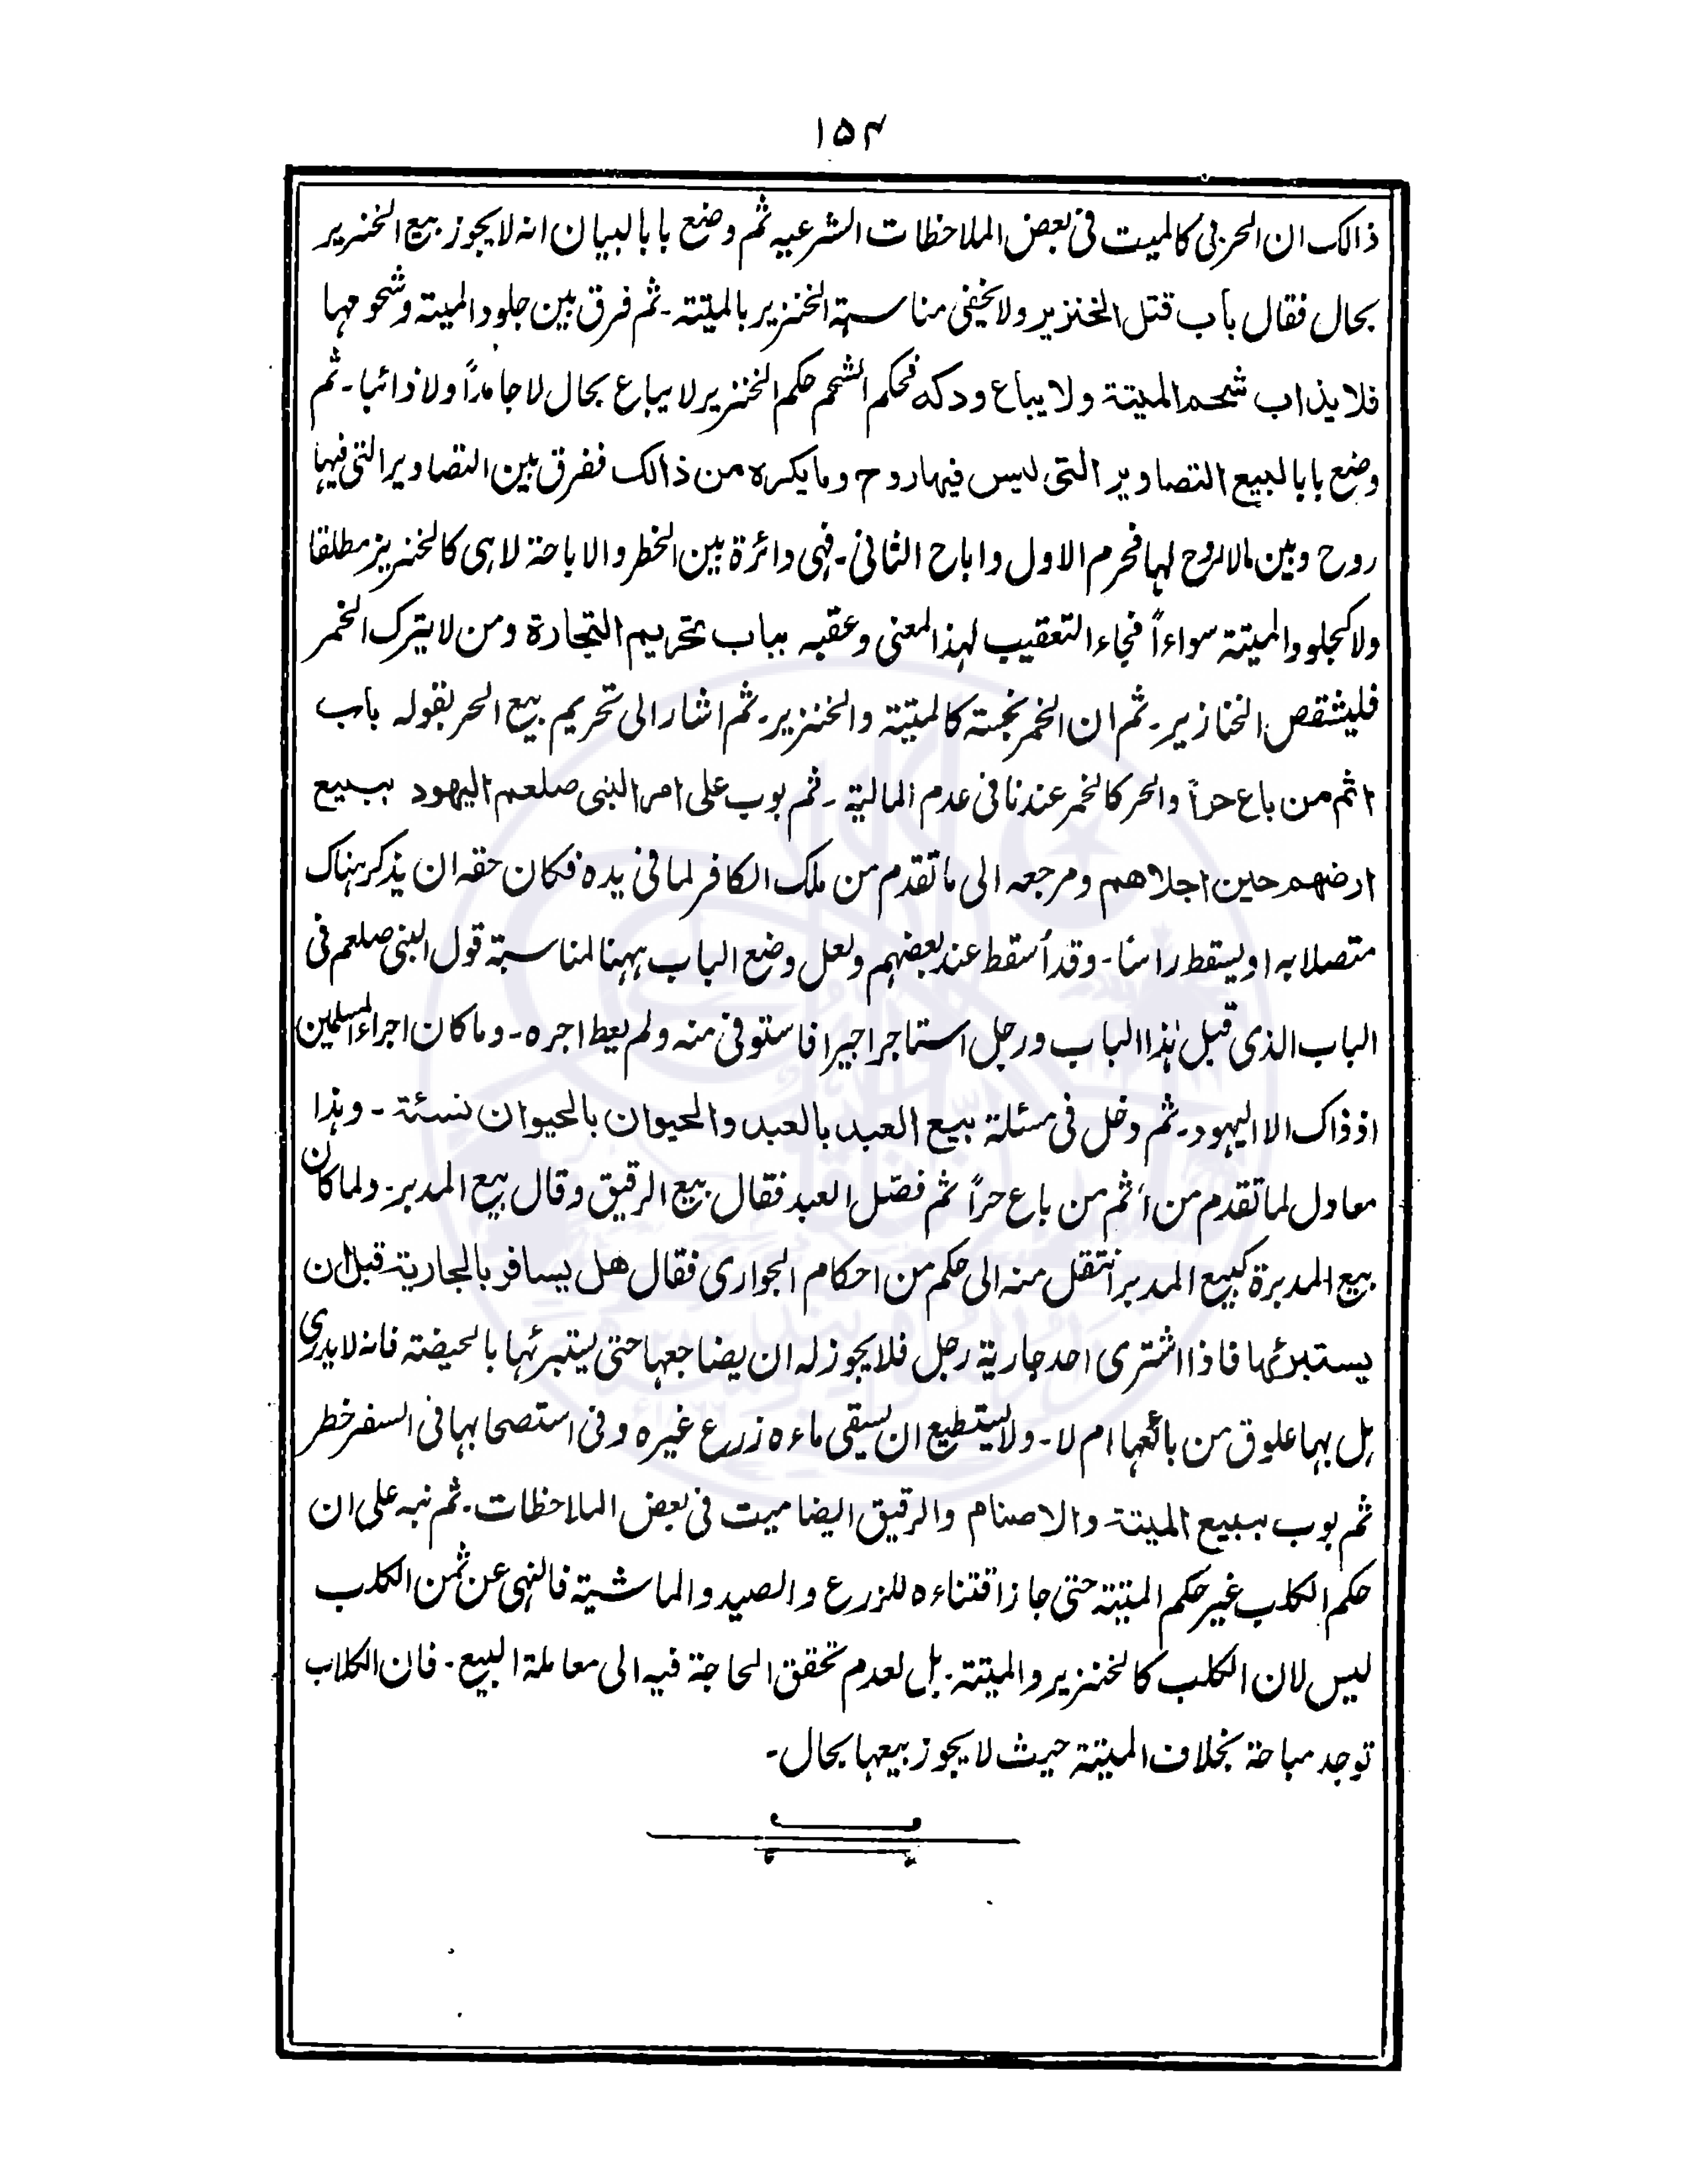 ۱۵۴
ذالک ان الحربی کالمیت فی بعض الملاحظات الشرعیه ثم وضع بابا لبیان انه لا یجوز بیع الخنزیر
بحال فقال باب قتل الخنزیر ولا یخفی مناسبة الخنزیر بالمیتة۔ ثم فرق بین جلود المیته وشحومہا
فلا یذاب شحم المیتة ولا یباع ودکه فحکم الشحم حکم الخنزیر لا یباع بحال لا جامداً ولا ذائبا۔ ثم
وضع بابا لبیع التصاویر التی لیس فیہا روح وما یکره من ذالک ففرق بین التصاویر التی فیہا
روح وبین مالا روح لہا فحرم الاول واباح الثانی۔ فہی دائرة بین الخطر والاباحة لا ہی کالخنزیر مطلقا
ولا کجلود المیتة سواءاً فجاء التعقیب لہذا المعنی وعقبه بباب تحریم التجارة ومن لا یترک الخمر
فلیشقص الخنازیر۔ ثم ان الخمر نجسة کالمیتة والخنزیر۔ ثم اشار الی تحریم بیع الحر بقوله باب
اثم من باع حراً والحر کالخمر عندنا فی عدم المالیة۔ ثم بوب علی امر النبی صلعم الیهود ببیع
ارضهم حین اجلاهم ومرجعه الی ما تقدم من ملک الکافر لما فی یده فکان حقه ان یذکر ہناک
متصلا به او یسقط راسًا۔ وقد أسقط عند بعضہم ولعل وضع الباب ہہنا لمناسبة قول النبی صلعم فی
الباب الذی قبل ہٰذا الباب ورجل استاجر اجیرا فاستوفی منه ولم یعط اجره۔ وما کان اجراء المسلمین
اذ ذاک الا الیہود۔ ثم دخل فی مسئلة بیع العبد بالعبد والحیوان بالحیوان نسئة۔ وہذا
معاول لما تقدم من أثم من باع حراً ثم فصّل العبد فقال بیع الرقیق وقال بیع المدبر۔ ولما کان
بیع المدبرة کبیع المدبر انتقل منه الی حکم من احکام الجواری فقال هل یسافر بالجاریة قبل ان
یستبرئها فاذا اشتری احد جاریة رجل فلا یجوز له ان یضاجعہا حتی یستبرئہا بالحیضته فانه لا یدری
ہل بہا علوق من بائعہا ام لا۔ ولا یستطیع ان یسقی ماءه زرع غیره وفی استصحابہا فی السفر خطر
ثم بوب ببیع المیتة والاصنام والرقیق ایضا میت فی بعض الملاحظات۔ ثم نبه علی ان
حکم الکلب غیر حکم المیتة حتی جاز اقتناءه للزرع والصید والماشیة فالنہی عن ثمن الکلب
لیس لان الکلب کالخنزیر والمیتة۔ بل لعدم تحقق الحاجة فیه الی معاملة البیع۔ فان الکلاب
توجد مباحة بخلاف المیتة حیث لا یجوز بیعہا بحال۔